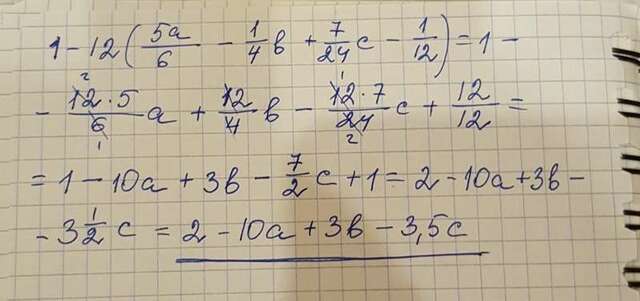 1 - 12(5a/6 - 1/4 в + 7/24 с - 1/12) = 1 -
- 12·5/6 а + 12/4 в - 12·7/24 с + 12/12 =
= 1 - 10а + 3в - 7/2 с + 1 = 2 - 10а + 3в -
- 3 1/2 с = 2 - 10а + 3в - 3,5с